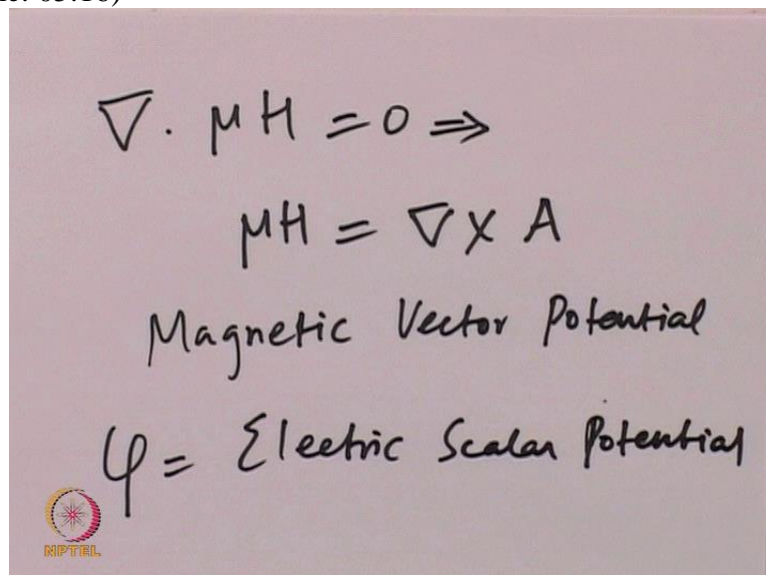 ∇. μH = 0 ⇒
μH = ∇ X A
Magnetic Vector Potential
φ = Electric Scalar Potential
NPTEL